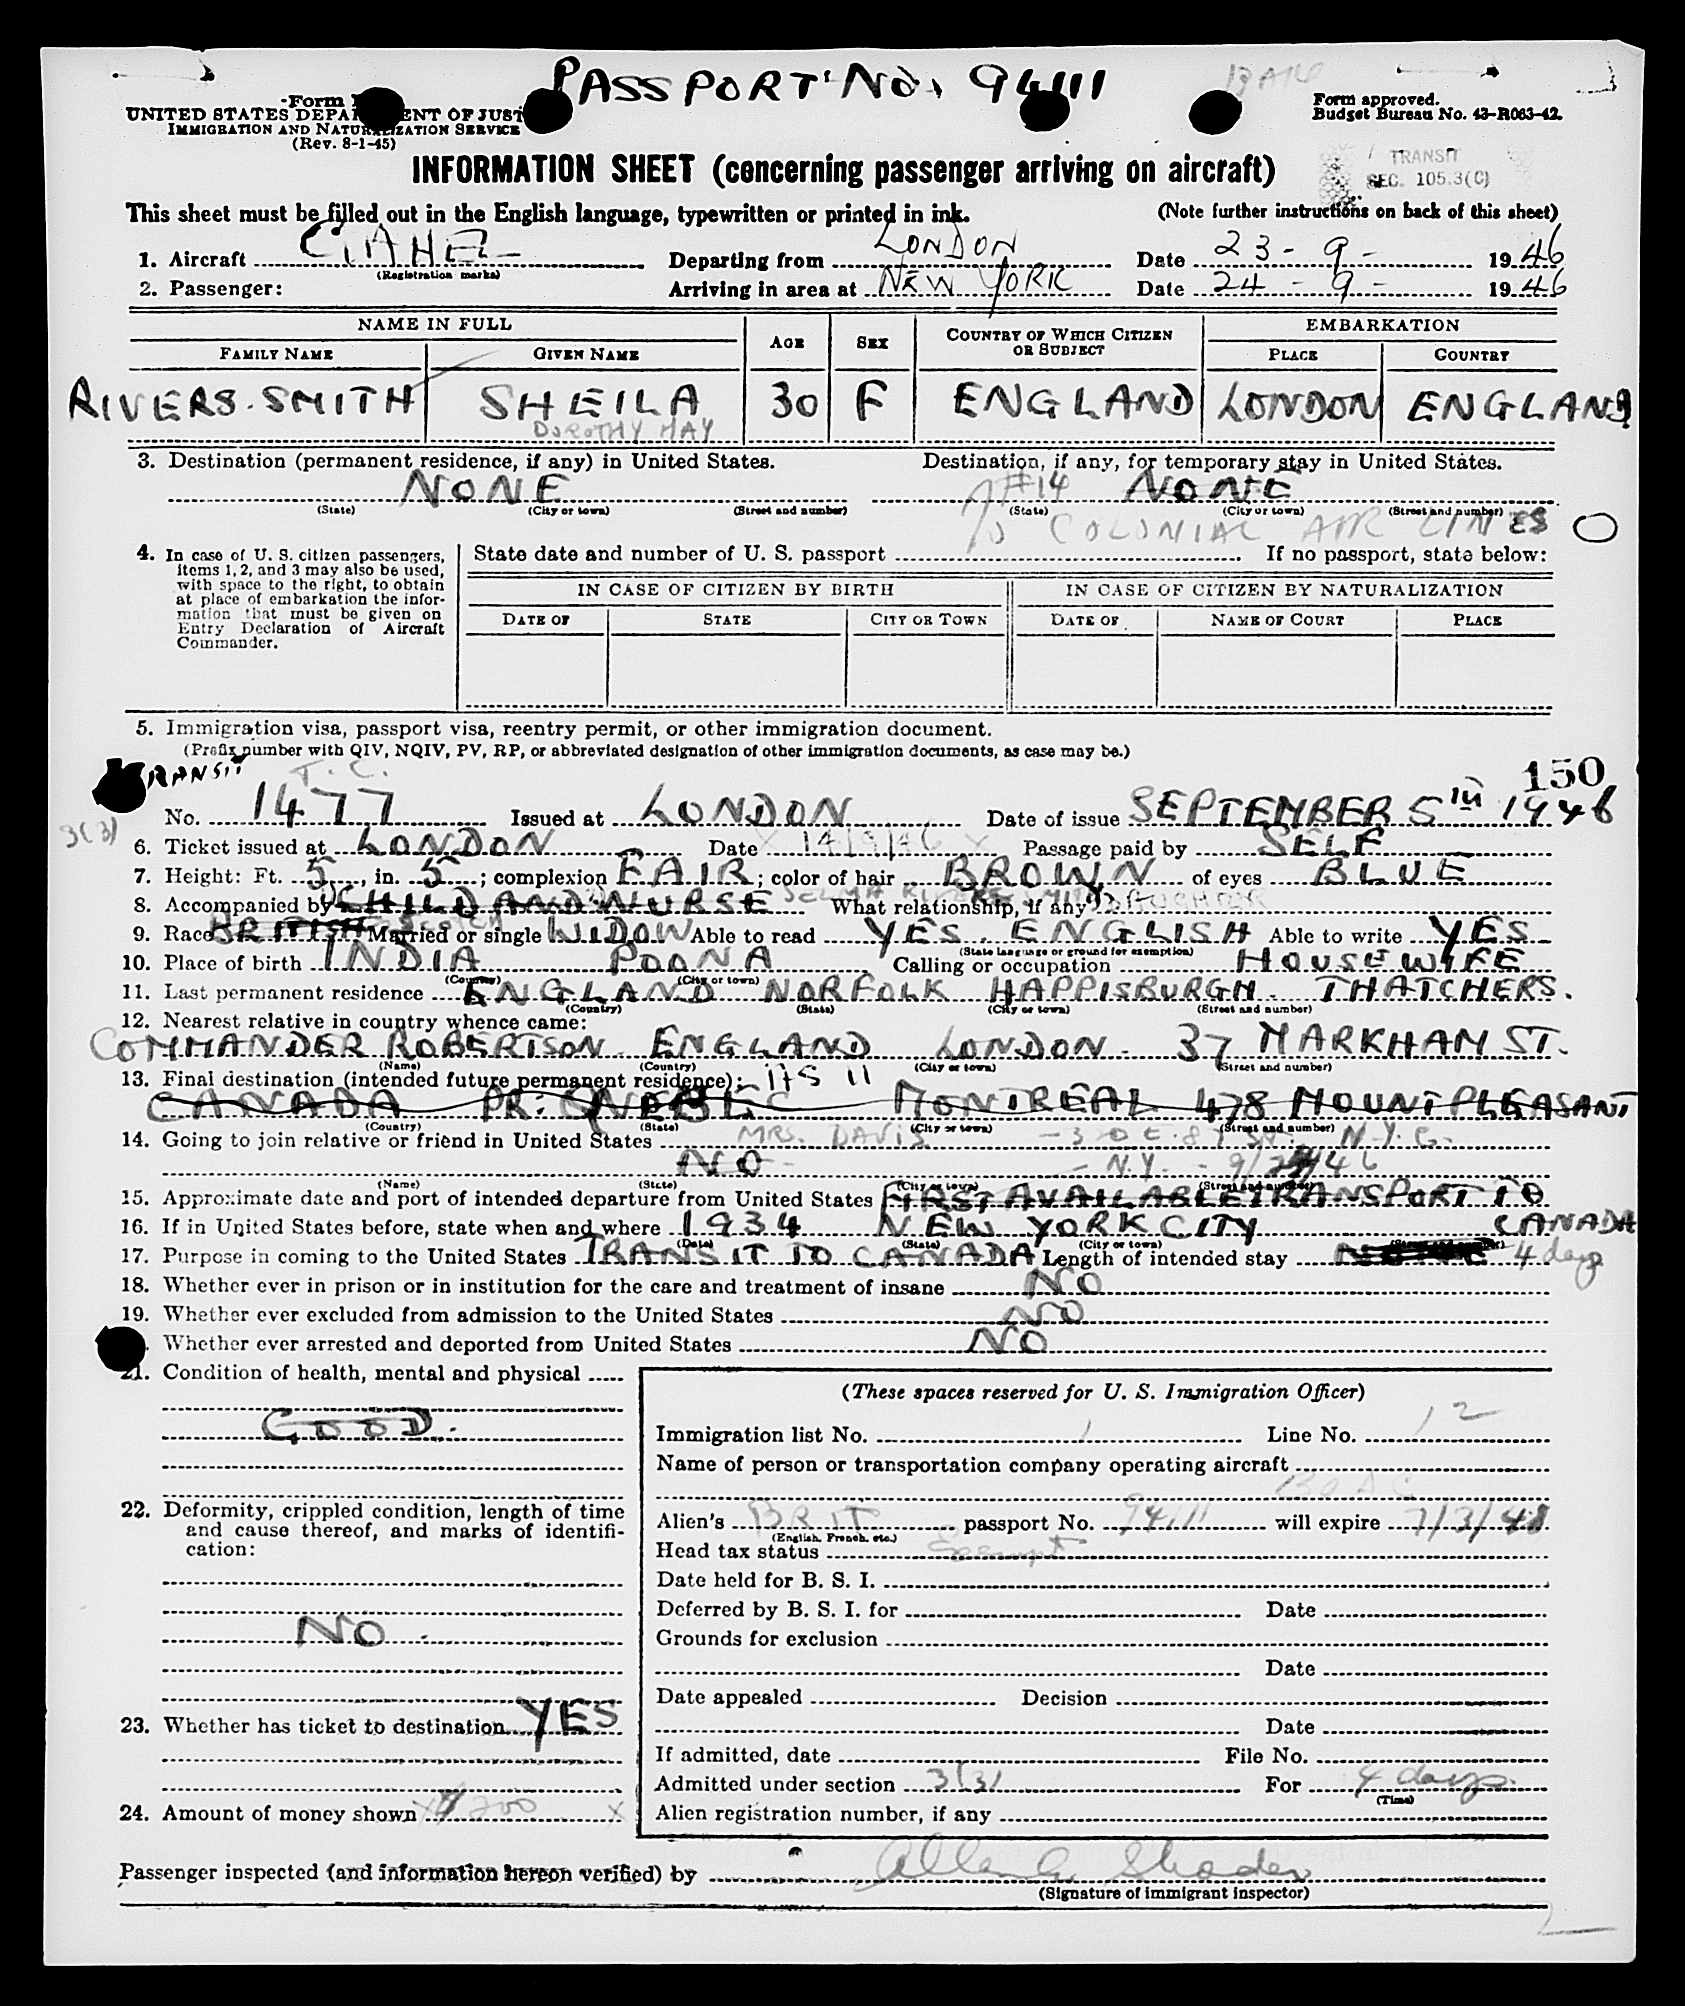 PASSPORT No. 94111
Form
UNITED STATES DEPARTMENT OF JUST
IMMIGRATION AND NATURALIZATION SERVICE
(Rev. 8-1-45)
Form approved.
Budget Bureau No. 43-R063-42.
INFORMATION SHEET (concerning passenger arriving on aircraft)
TRANSIT
SEC. 105.3(C)
This sheet must be filled out in the English language, typewritten or printed in ink.
(Note further instructions on back of this sheet)
1. Aircraft Departing from LONDON Date 23 - 9 - 1946
(Registration marks)
2. Passenger: Arriving in area at NEW YORK Date 24 - 9 - 1946
NAME IN FULL AGE SEX COUNTRY OF WHICH CITIZEN OR SUBJECT EMBARKATION
FAMILY NAME GIVEN NAME PLACE COUNTRY
RIVERS-SMITH SHEILA 30 F ENGLAND LONDON ENGLAND
DOROTHY MAY
3. Destination (permanent residence, if any) in United States. Destination, if any, for temporary stay in United States.
NONE #14 NONE
(State) (City or town) (Street and number) (State) (City or town) (Street and number)
COLONIAL AIR LINES
4. In case of U. S. citizen passengers, items 1, 2, and 3 may also be used, with space to the right, to obtain at place of embarkation the information that must be given on Entry Declaration of Aircraft Commander.
State date and number of U. S. passport If no passport, state below:
IN CASE OF CITIZEN BY BIRTH IN CASE OF CITIZEN BY NATURALIZATION
DATE OF STATE CITY OR TOWN DATE OF NAME OF COURT PLACE
5. Immigration visa, passport visa, reentry permit, or other immigration document.
(Prefix number with QIV, NQIV, PV, RP, or abbreviated designation of other immigration documents, as case may be.)
TRANSIT T.C. 150
No. 1477 Issued at LONDON Date of issue SEPTEMBER 5TH 1946
3(3)
6. Ticket issued at LONDON Date 14/9/46 Passage paid by SELF
7. Height: Ft. 5, in. 5; complexion FAIR; color of hair BROWN of eyes BLUE
8. Accompanied by CHILD AND NURSE What relationship, if any DAUGHTER
9. Race BRITISH Married or single WIDOW Able to read YES. ENGLISH Able to write YES
(State language or ground for exemption)
10. Place of birth INDIA POONA Calling or occupation HOUSEWIFE
(Country) (City or town)
11. Last permanent residence ENGLAND NORFOLK HAPPISBURGH. THATCHERS.
(Country) (State) (City or town) (Street and number)
12. Nearest relative in country whence came:
COMMANDER ROBERTSON. ENGLAND LONDON - 37 MARKHAM ST.
(Name) (Country) (City or town) (Street and number)
13. Final destination (intended future permanent residence):
CANADA PR: QUEBEC MONTREAL 478 MOUNTPLEASANT
(Country) (State) (City or town) (Street and number)
14. Going to join relative or friend in United States MRS. DAVIS N.Y.C.
NO - N.Y. -
(Name) (State) (City or town) (Street and number)
15. Approximate date and port of intended departure from United States FIRST AVAILABLE TRANSPORT TO CANADA
16. If in United States before, state when and where 1934 NEW YORK CITY
(Date) (State) (City or town) (Street and number)
17. Purpose in coming to the United States TRANSIT TO CANADA Length of intended stay 4 days
18. Whether ever in prison or in institution for the care and treatment of insane NO
19. Whether ever excluded from admission to the United States NO
Whether ever arrested and deported from United States NO
21. Condition of health, mental and physical
GOOD.
22. Deformity, crippled condition, length of time and cause thereof, and marks of identification:
NO
23. Whether has ticket to destination YES
24. Amount of money shown $ 200
(These spaces reserved for U. S. Immigration Officer)
Immigration list No. 1 Line No. 12
Name of person or transportation company operating aircraft
BOAC
Alien's BRIT passport No. 94111 will expire 7/3/48
(English, French, etc.)
Head tax status
Date held for B. S. I.
Deferred by B. S. I. for Date
Grounds for exclusion
Date
Date appealed Decision
Date
If admitted, date File No.
Admitted under section 3(3) For 4 days
(Time)
Alien registration number, if any
Passenger inspected (and information hereon verified) by
(Signature of immigrant inspector)